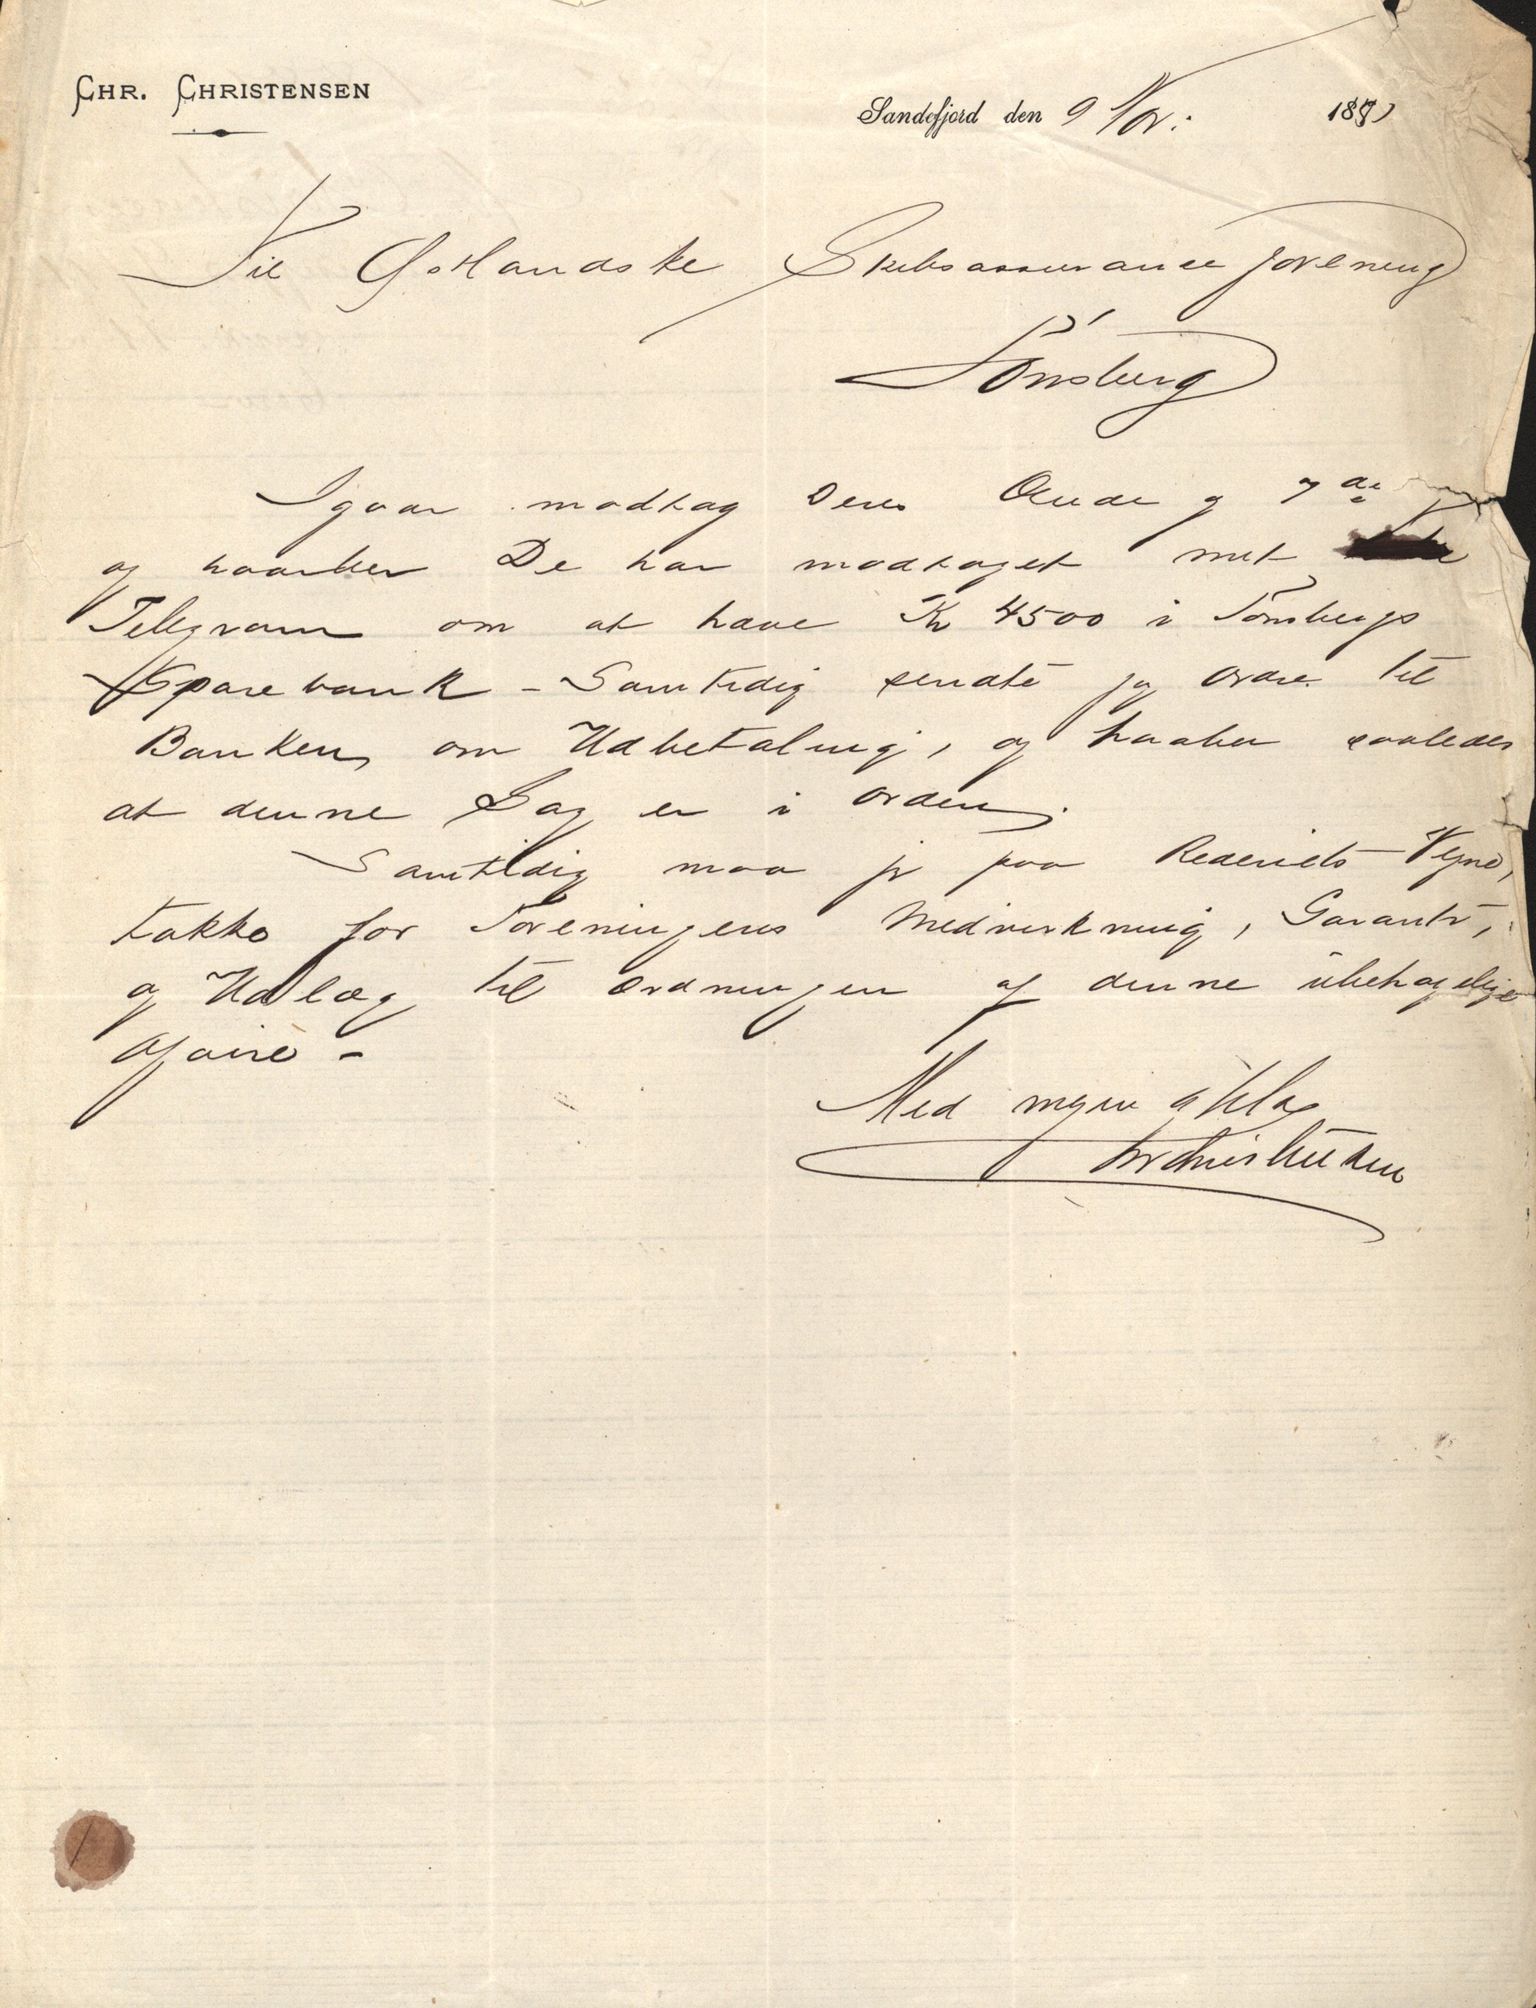 Chr. Christensen
Sandefjord den 9 Nov: 188
Til Østlandske Skibsassuranceforening
Tönsberg
Igaar modtog Deres Ærede af 7de
og haaber De har modtaget mit
Telegram om at have Kr 4500 i Tönsbergs
Sparebank - Samtidig sendte jeg Ordre til
Banken, om Udbetaling, og haaber saaledes
at denne Sag er i Orden.
Samtidig maa jeg paa Rederiets Vegne,
takke for Foreningens Medvirkning, Garanti,
og Udlæg til Ordningen af denne ubehagelige
Afaire -
Med megen Agtelse
Chr Christensen